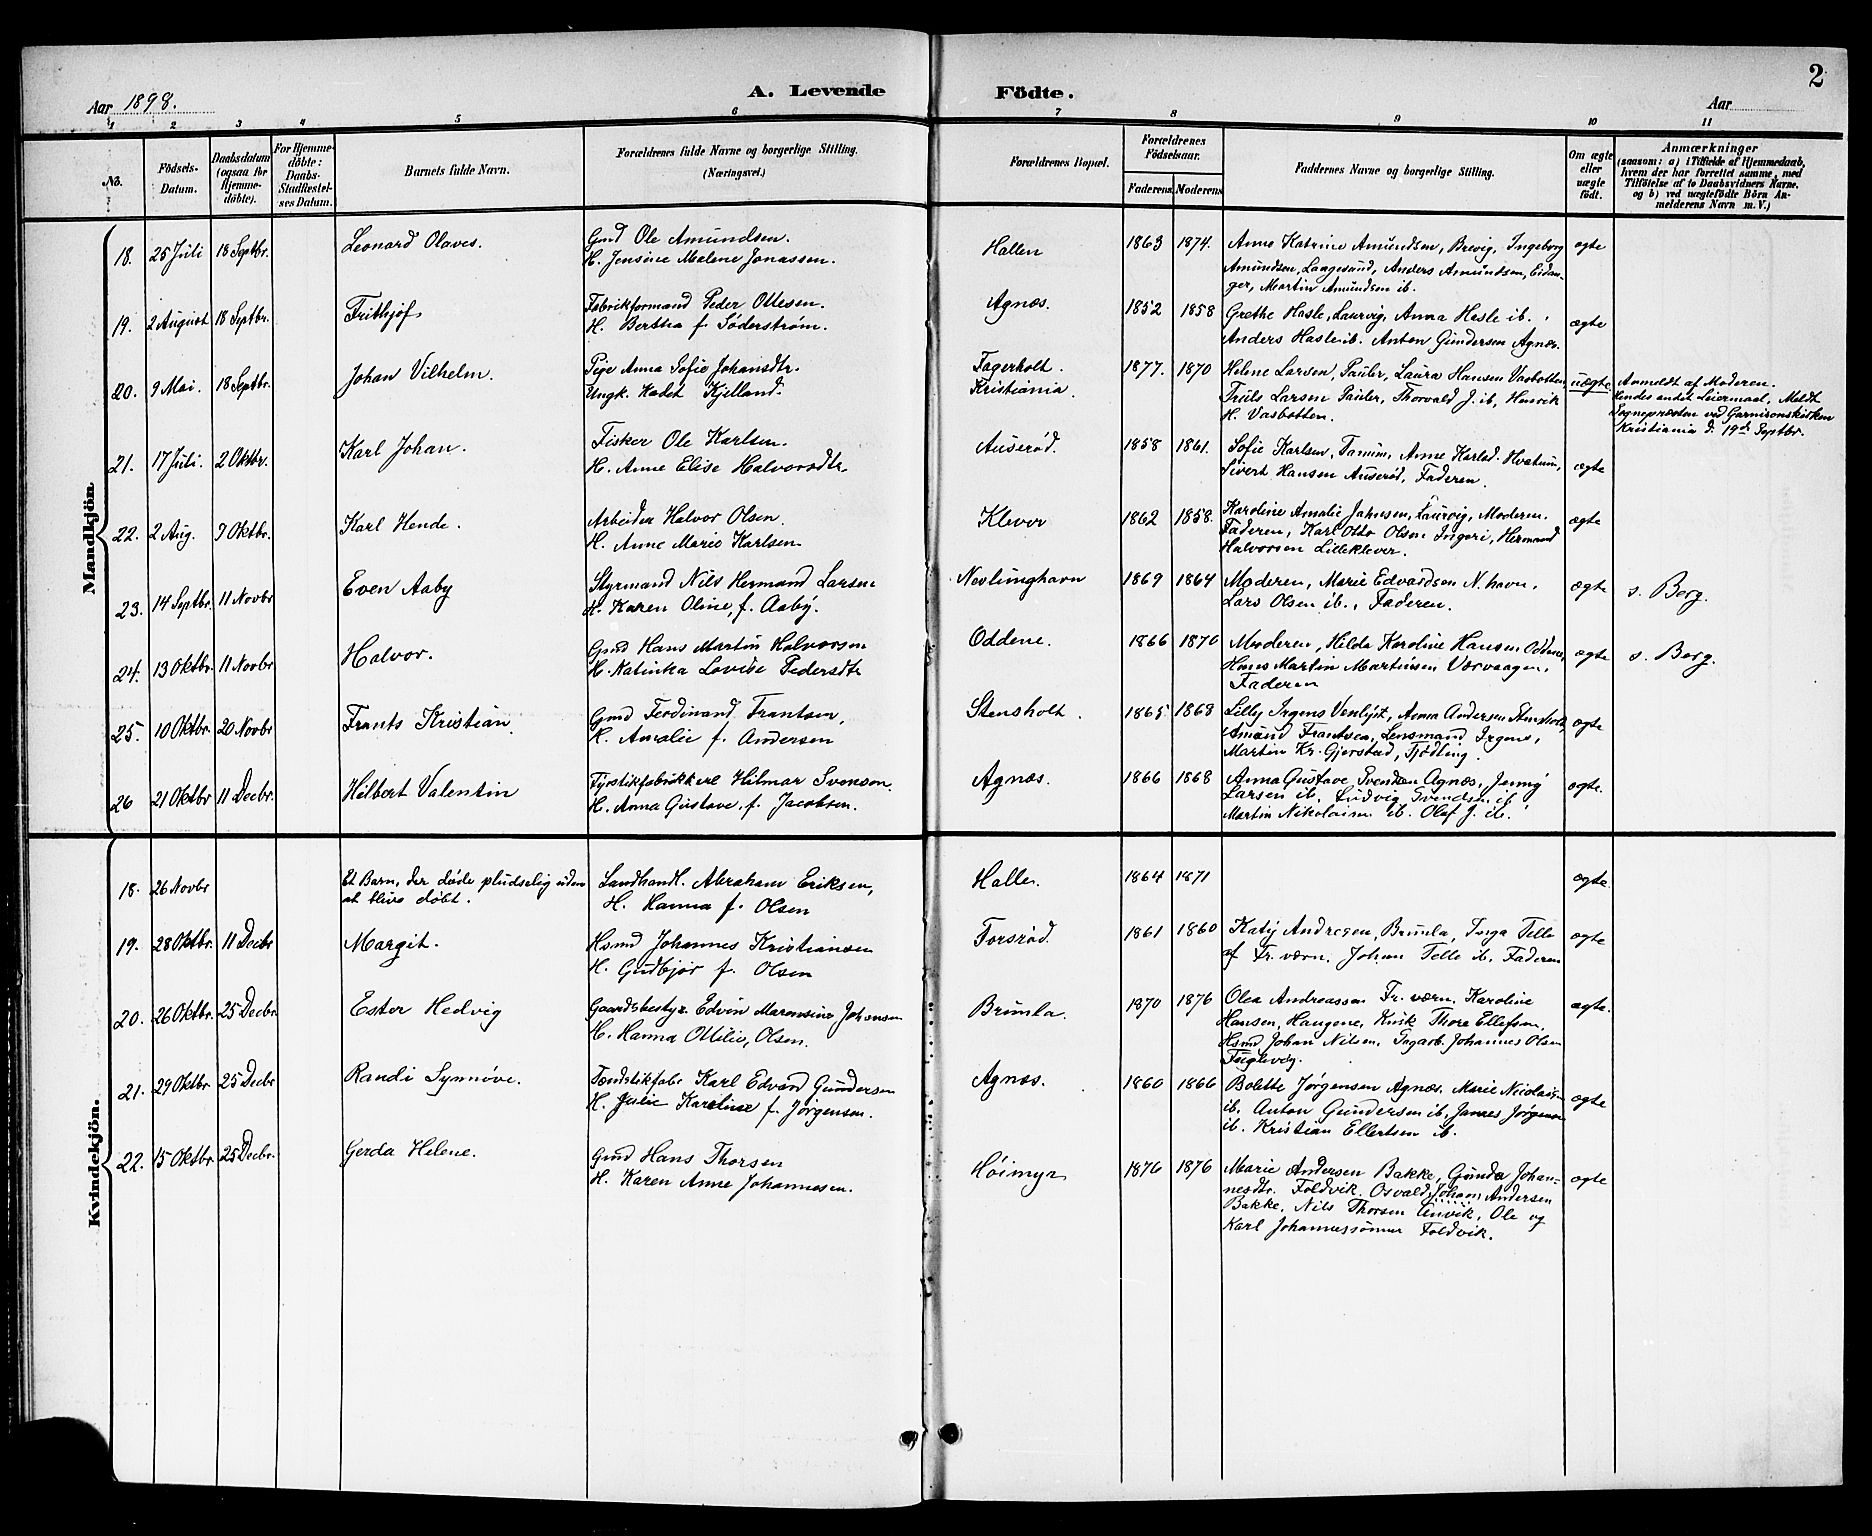 2
Aar 1898.
A. Levende Födte.
Aar
1 2 3 4 5 6 7 8 9 10 11
No.
Födsels-Datum.
Daabsdatum (ogsaa for Hjemme-döbte).
For Hjemme-döbte: Daabs-Stadfæstel-ses Datum.
Barnets fulde Navn.
Forældrenes fulde Navne og borgerlige Stilling.
(Næringsvei.)
Forældrenes Bopæl.
Forældrenes Födselsaar.
Faderens. Moderens.
Faddernes Navne og borgerlige Stilling.
Om ægte eller uægte födt.
Anmærkninger
(saasom: a) i Tilfælde af Hjemmedaab,
hvem der har forrettet samme, med
Tilföielse af to Daabsvidners Navne.
og b) ved uægtefödte Börn An-
melderens Navn m. V.)
Mandkjön
18. 25 Juli 18 Septbr. Leonard Olaves. Gmd Ole Amundsen. Hallen 1863 1874. Anne Katrine Amundsen, Brevig, Ingeborg ægte
H. Jensine Malene Jonassen. Amundsen, Laagesund, Anders Amundsen, Eidan-
ger, Martin Amundsen ib.
19. 2 August 18 Septbr. Frithjof. Fabrikformand Peder Ottesen. Agnæs. 1852 1858 Grethe Hasle, Laurvig, Anna Hasle ib. ægte
H. Bertha f. Söderström. Anders Hasle ib. Anton Gundersen Agnæs.
20. 9 Mai. 18 Septbr. Johan Vilhelm. Pige Anna Sofie Johansdtr. Fagerholt. 1877. 1870 Helene Larsen, Pauler, Laura Hansen Vasbotten uægte Anmeldt af Moderen.
Ungk. Kadet Kjelland. Kristiania. Truls Larsen Pauler, Thorvald J. ib, Henrik Hendes andet Leiermaal. Meldt
H. Vasbotten. Sognepræsten ved Garnisonskirken
Kristiania d. 19de Septbr.
21. 17 Juli. 2 Oktbr. Karl Johan. Fisker Ole Karlsen. Auserød. 1858 1861. Sofie Karlsen, Tanum, Anne Karlsd. Hvatum, ægte
H. Anne Elise Halvorsdtr. Sivert Hansen Auserød, Faderen.
22. 2 Aug. 9 Oktbr. Karl Hende. Arbeider Halvor Olsen. Klever 1862 1858. Karoline Amalie Jahnsen, Laurvig, Moderen. ægte
H. Anne Marie Karlsen Faderen, Karl Otto Olsen Ingeri, Hermand
Halvorsen Lilleklever.
23. 14 Septbr. 11 Novbr Even Aaby Styrmand Nils Hermand Larsen Nevlinghavn 1869 1864 Moderen, Marie Edvardsen N.havn, ægte s. Berg.
H. Karen Oline, f. Aaby. Lars Olsen ib., Faderen.
24. 13 Oktbr. 11 Novbr Halvor. Gmd Hans Martin Halvorsen Oddene. 1866 1870 Moderen, Hilda Karoline Hansen Oddene, ægte s. Berg.
H. Katinka Lovise Pedersdtr Hans Martin Martinsen Værvaagen,
Faderen
25. 10 Oktbr. 20 Novbr Frants Kristian. Gmd Ferdinand Frantsen, Stensholt. 1865 1868 Lilly Irgens Venlyst, Anna Andersen Stensholt, ægte
H. Amalie f. Andersen Amund Frantsen, Lensmand Irgens,
Martin Kr. Gjerstad, Tjødling.
26 21 Oktbr 11 Decbr. Hilbert Valentin Fyrstikfabrikkerl Hilmar Svenson. Agnæs. 1866 1868 Anna Gustave Svendsen Agnæs, Jenny ægte.
H. Anna Gustave f. Jacobsen. Larsen ib. Ludvig Svendsen ib.
Martin Nikolaisen ib. Olaf J. ib.
Kvindekjön.
18. 26 Novbr Et Barn, der døde pludselig uden Landhandl. Abraham Eriksen, Halle. 1864 1871 ægte.
at blive døbt. H. Hanna f. Olsen
19. 28 Oktbr. 11 Decbr Margit. Hsmd Johannes Kristiansen Forsrød. 1861 1860 Katy Andresen, Brumla, Inga Telle ægte
H. Gudbjør f. Olsen af Fr. værn. Johan Telle ib. Faderen
20. 26 Oktbr. 25 Decbr. Ester Hedvig Gaardsbestyr. Edvin Maronsius Johansen Brumla. 1870 1876 Olea Andreassen Fr. værn, Karoline ægte.
H. Hanna Ottilie, Olsen. Hansen, Haugene, Kirk Thore Ellefsen,
Hsmd Johan Nilsen, Johannes Olsen
Fuglevig.
21. 29 Oktbr 25 Decbr Randi Synnøve. Tændstikfabr Karl Edvard Gundersen Agnæs. 1860 1866 Bolette Jørgensen Agnæs. Marie Nicolaisen ægte
H. Julie Karoline f. Jørgensen. ib. Anton Gundersen ib, James Jørgensen
ib. Kristian Ellertsen ib.
22. 15 Oktbr. 25 Decbr. Gerda Helene. Gmd Hans Thorsen Høimyr 1876 1876 Marie Andersen Bakke, Gunda Johan- ægte
H. Karen Anne Johannesen. nesdtr. Foldvik. Osvald, Johan Andersen
Bakke, Nils Thorsen Omvik, Ole og
Karl Johannessønner Foldvik.